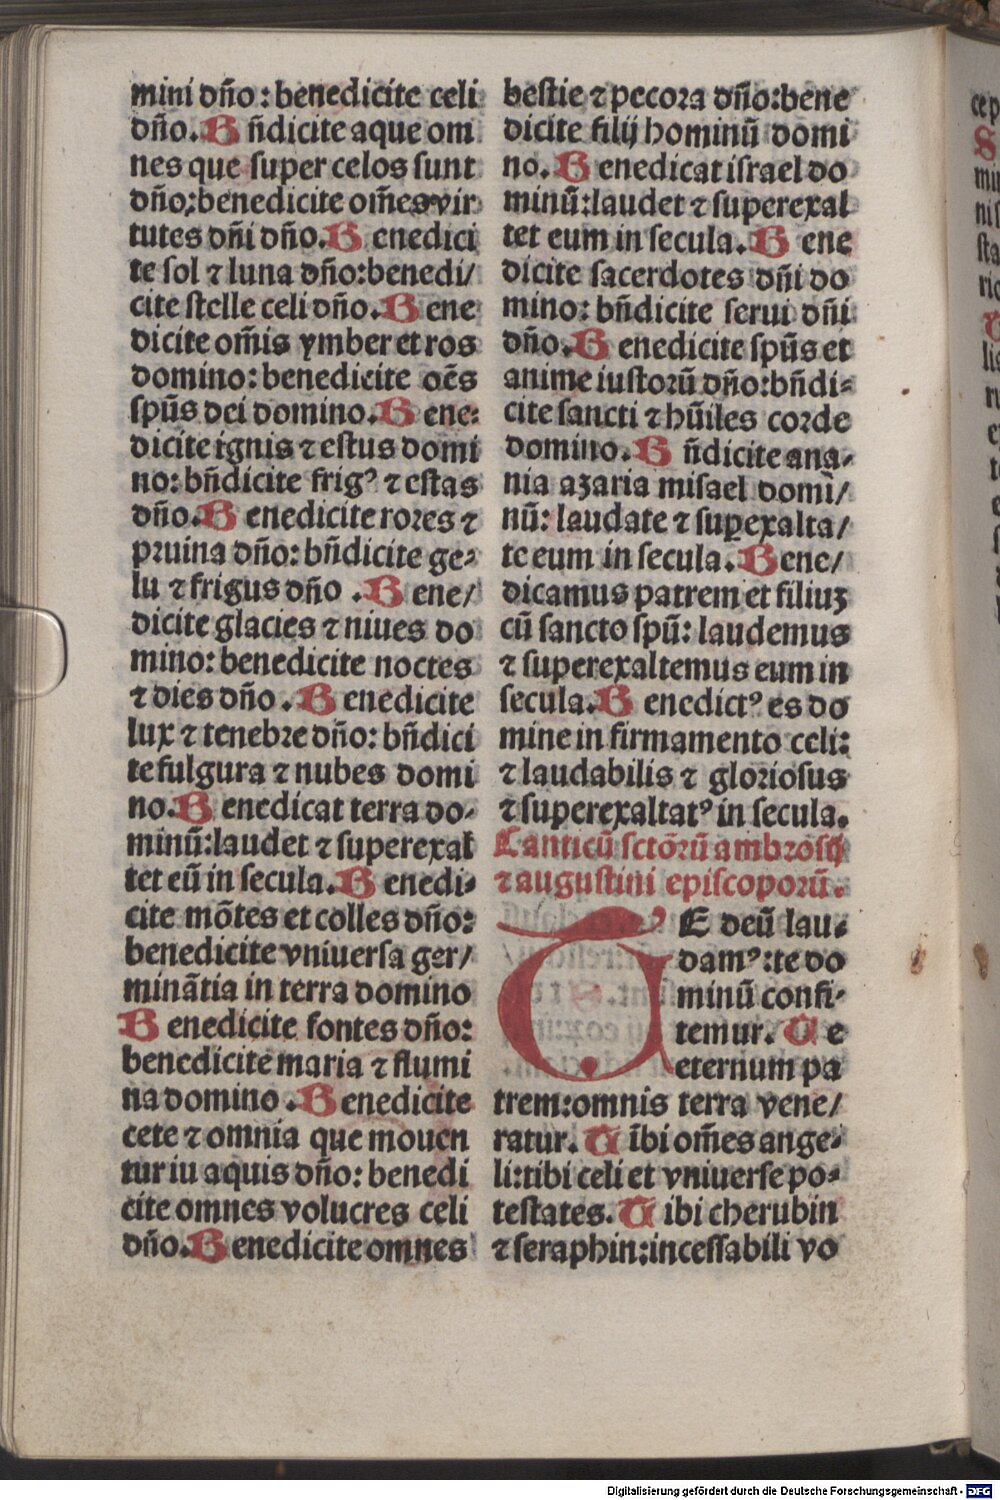 mini dño: benedicite celi
dño. B ñdicite aque om
nes que super celos sunt
dño: benedicite om̃es vir
tutes dñi dño. B enedici
te sol ⁊ luna dño: benedi/
cite stelle celi dño. B ene
dicite om̃is ymber et ros
domino: benedicite oẽs
spũs dei domino. B ene:
dicite ignis ⁊ estus domi
no: bñdicite frigꝰ ⁊ estas
dño. B enedicite rores ⁊
pruina dño: bñdicite ge-
lu ⁊ frigus dño . B ene/
dicite glacies ⁊ niues do
mino: benedicite noctes
⁊ dies dño . B enedicite
lux ⁊ tenebre dño: bñdici
te fulgura ⁊ nubes domi
no. B enedicat terra do-
minũ: laudet ⁊ superexal
tet eũ in secula. B enedi-
cite mõtes et colles dño:
benedicite vniuersa ger/
minãtia in terra domino
B enedicite fontes dño:
benedicite maria ⁊ flumi
na domino . B enedicite
cete ⁊ omnia que mouen
tur iu aquis dño: benedi
cite omnes volucres celi
dño. B enedicite omnes
bestie ⁊ pecora dño: bene
dicite filij hominũ domi
no. B enedicat israel do
minũ: laudet ⁊ superexal
tet eum in secula. B ene
dicite sacerdotes dñi do
mino: bñdicite serui dñi
dño. B enedicite spũs et
anime iustorũ dño: bñdi-
cite sancti ⁊ hũiles corde
domino. B ñdicite ana-
nia azaria misael domi/
nũ: laudate ⁊ suꝑexalta/
te eum in secula. B ene/
dicamus patrem et filiuꝫ
cũ sancto spũ: laudemus
⁊ superexaltemus eum in
secula. B enedictꝰ es do
mine in firmamento celi:
⁊ laudabilis ⁊ gloriosus
⁊ superexaltatꝰ in secula.
Canticũ sctõrũ ambrosij
⁊ augustini episcoporũ.
T E deũ lau-
damꝰ: te do
minũ confi-
temur. T e
eternum pa
trem: omnis terra vene/
ratur. T ibi om̃es ange-
li: tibi celi et vniuerse po-
testates. T ibi cherubin
⁊ seraphin: incessabili vo
Digitalisierung gefördert durch die Deutsche Forschungsgemeinschaft - DFG